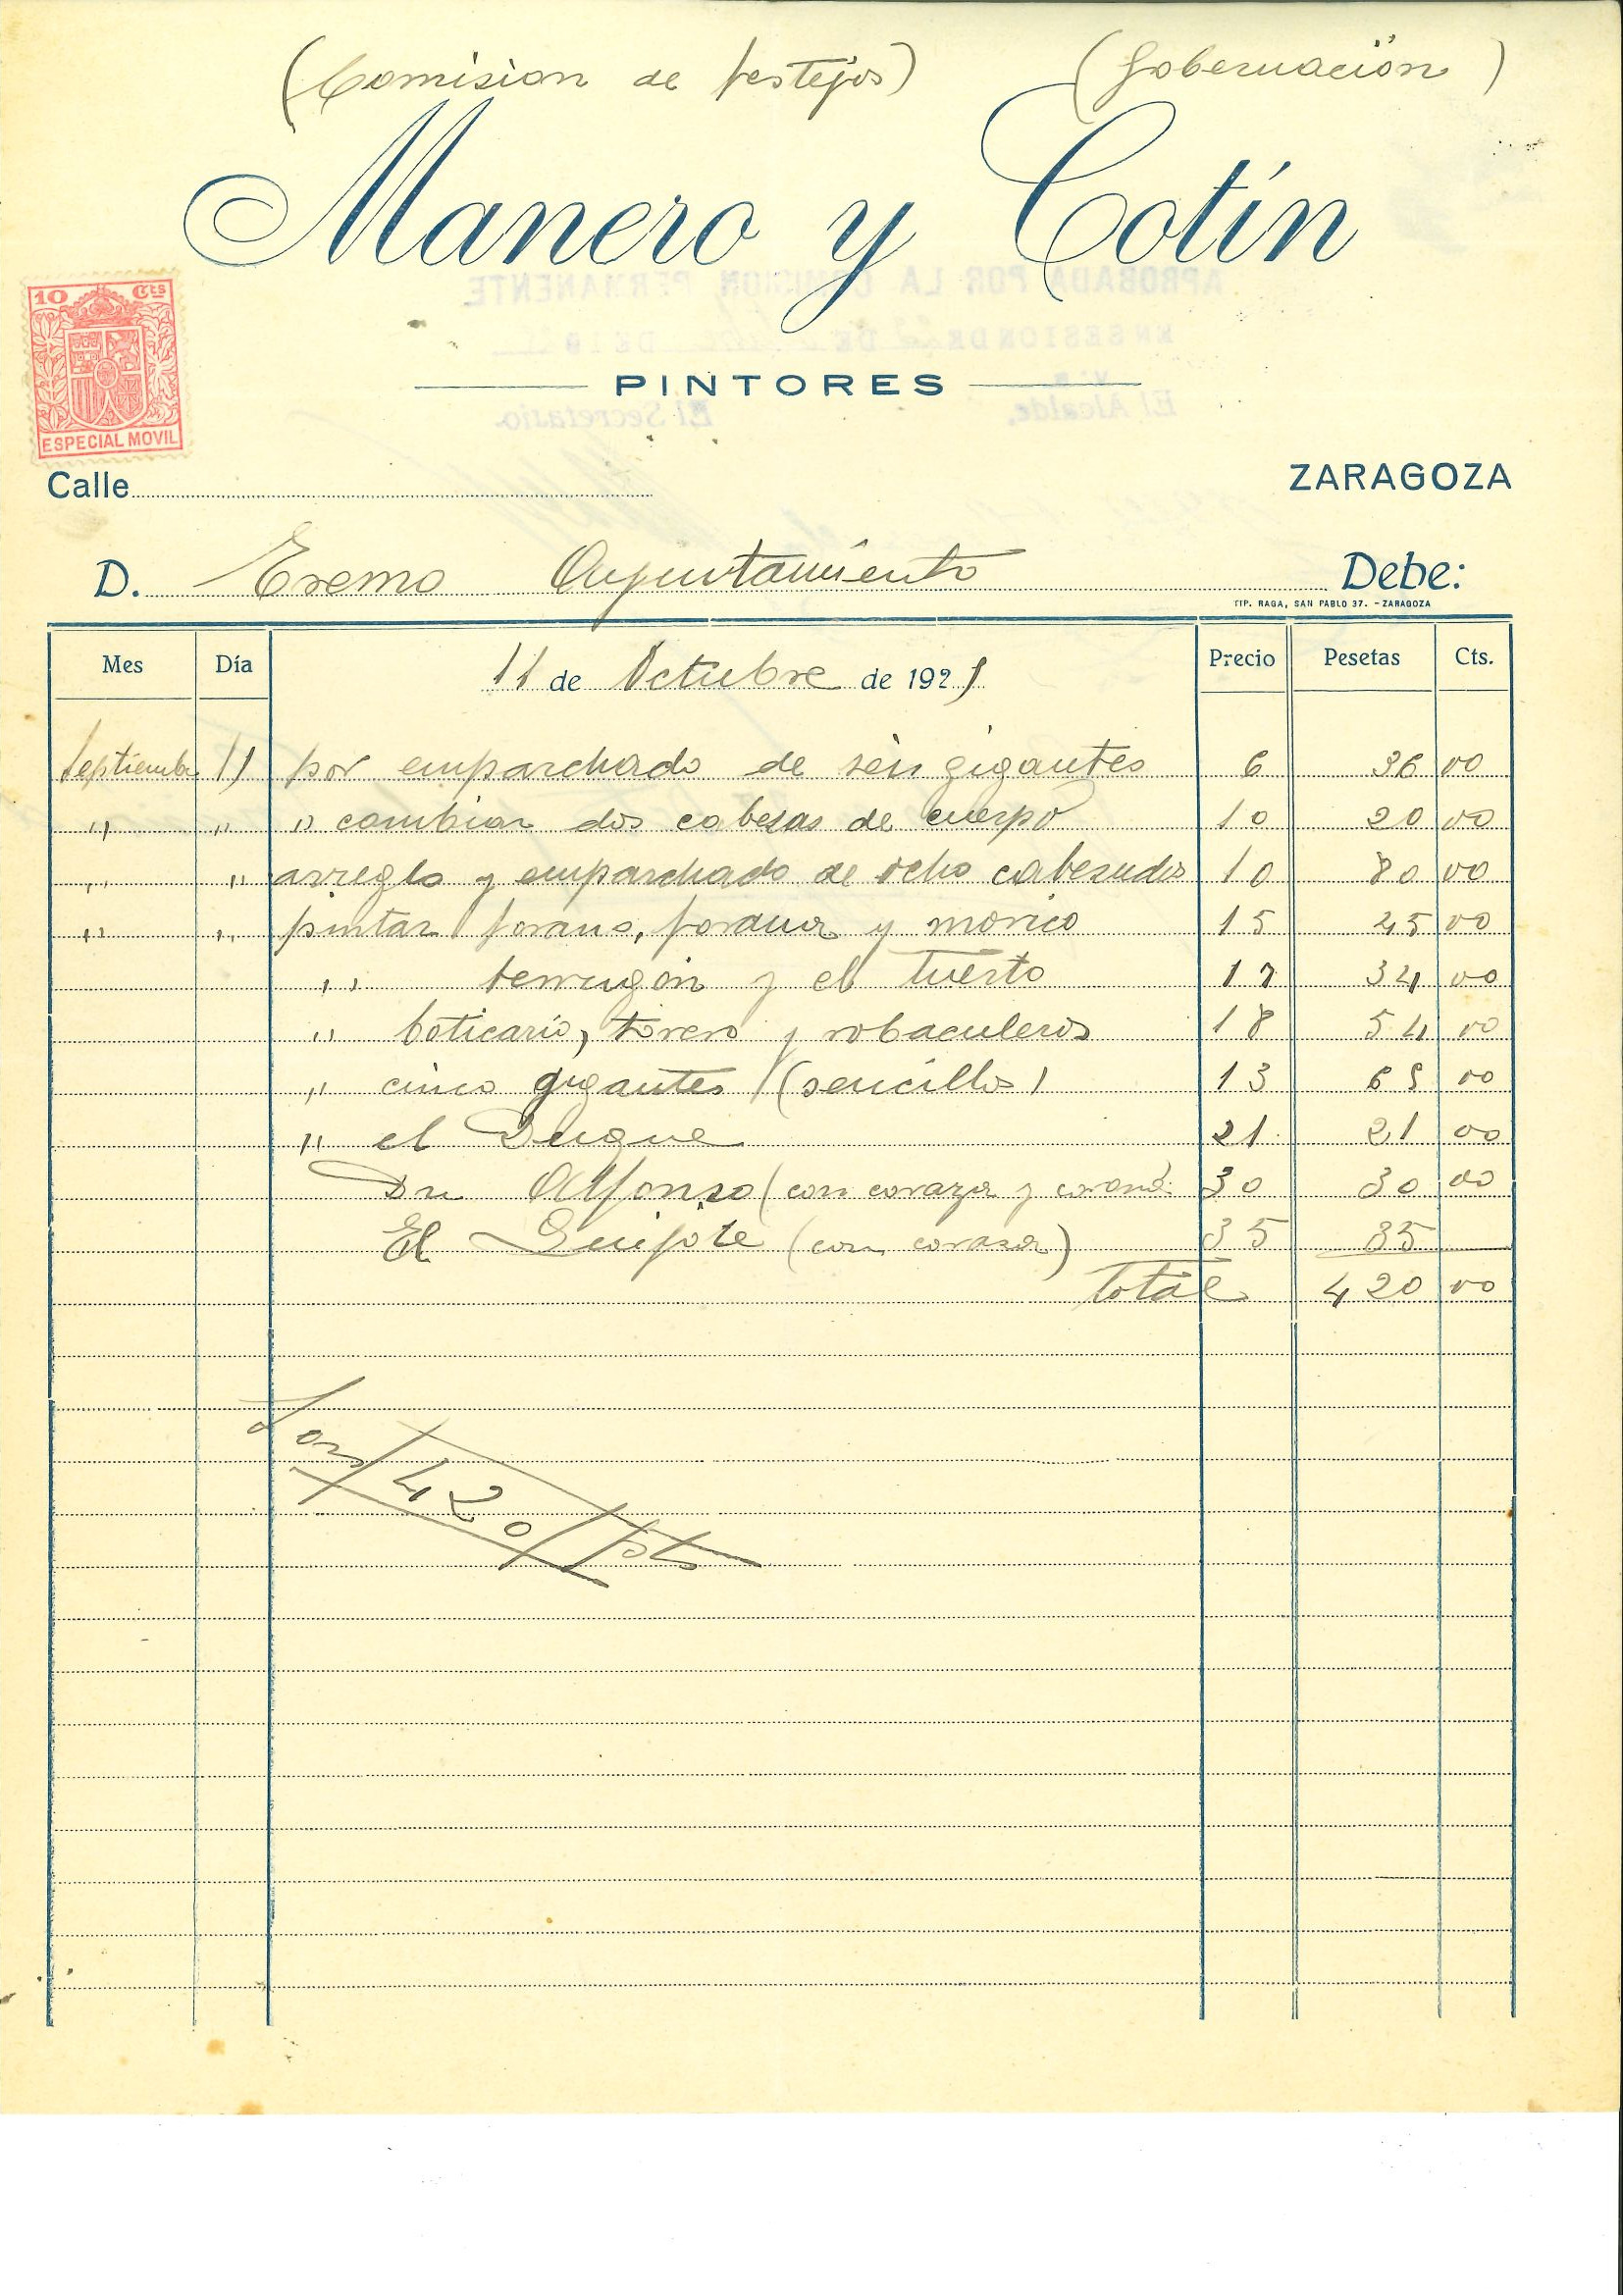 (Comision de festejos) (Gobernación)
Manero y Cotín
10 Cts
PINTORES
ESPECIAL MOVIL
Calle ZARAGOZA
D. Exemo Ayuntamiento Debe:
TIP. RAGA, SAN PABLO 37. - ZARAGOZA
Mes Día 11 de Octubre de 1921 Precio Pesetas Cts.
Septiembre 11 por emparchado de seis gigantes 6 36 00
" " " cambiar dos cabesas de cuerpo 10 20 00
" " arreglo y emparchado de ocho cabesudos 10 80 00
" " pintar forano, forana y morico 15 45 00
" berrugon y el tuerto 17 34 00
" boticario, torero y robaculeros 18 54 00
" cinco gigantes (sencillos) 13 65 00
" el Duque 21 21 00
Dn Alfonso (con coraza y corona 30 30 00
El Quijote (con corasa) 35 35
Total 420 00
Son 420 Pts